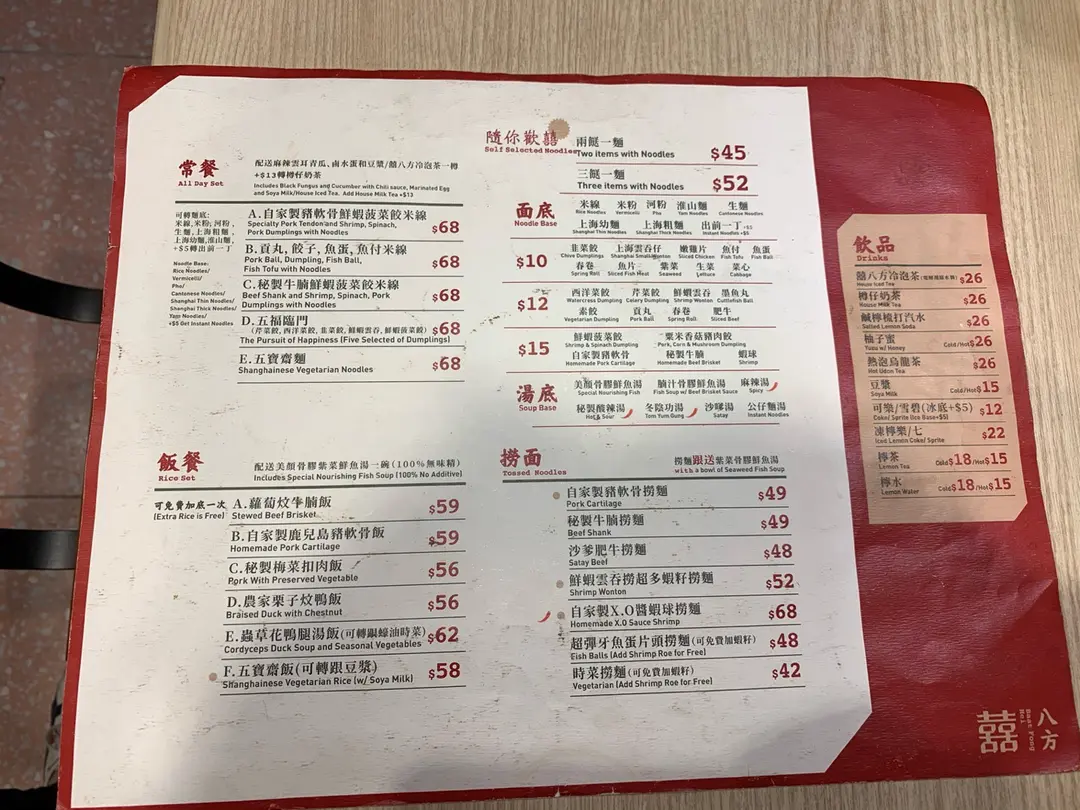 常餐
All Day Set
配送麻辣雲耳青瓜、鹵水蛋和豆漿/囍八方冷泡茶一樽
+$13轉樽仔奶茶
Includes Black Fungus and Cucumber with Chili sauce, Marinated Egg
and Soya Milk/House Iced Tea. Add House Milk Tea +$13
可轉麵底:
米線,米粉,河粉,
生麵,上海粗麵,
上海幼麵,淮山麵,
+$5轉出前一丁
Noodle Base:
Rice Noodles/
Vermicelli/
Pho/
Cantonese Noodles/
Shanghai Thin Noodles/
Shanghai Thick Noodles/
Yam Noodles/
+$5 Get Instant Noodles
A.自家製豬軟骨鮮蝦菠菜餃米線
Specialty Pork Tendon and Shrimp, Spinach,
Pork Dumplings with Noodles
$68
B.貢丸,餃子,魚蛋,魚付米線
Pork Ball, Dumpling, Fish Ball,
Fish Tofu with Noodles
$68
C.秘製牛腩鮮蝦菠菜餃米線
Beef Shank and Shrimp, Spinach, Pork
Dumplings with Noodles
$68
D.五福臨門
(芹菜餃,西洋菜餃,韭菜餃,鮮蝦雲吞,鮮蝦菠菜餃)
The Pursuit of Happiness (Five Selected of Dumplings)
$68
E.五寶齋麵
Shanghainese Vegetarian Noodles
$68
隨你歡囍
Self Selected Noodles
兩餸一麵
Two items with Noodles
$45
三餸一麵
Three items with Noodles
$52
面底
Noodle Base
米線 米粉 河粉 淮山麵 生麵
Rice Noodles Vermicelli Pho Yam Noodles Cantonese Noodles
上海幼麵 上海粗麵 出前一丁+$5
Shanghai Thin Noodles Shanghai Thick Noodles Instant Noodles +$5
$10
韭菜餃 上海雲吞仔 嫩雞片 魚付 魚蛋
Chive Dumplings Shanghai Small Wonton Sliced Chicken Fish Tofu Fish Ball
春卷 魚片 紫菜 生菜 菜心
Spring Roll Sliced Fish Meat Seaweed Lettuce Cabbage
$12
西洋菜餃 芹菜餃 鮮蝦雲吞 墨魚丸
Watercress Dumpling Celery Dumpling Shrimp Wonton Cuttlefish Ball
素餃 貢丸 春卷 肥牛
Vegetarian Dumpling Pork Ball Spring Roll Sliced Beef
$15
鮮蝦菠菜餃 粟米香菇豬肉餃
Shrimp & Spinach Dumpling Pork, Corn & Mushroom Dumpling
自家製豬軟骨 秘製牛腩 蝦球
Homemade Pork Cartilage Homemade Beef Brisket Shrimp
湯底
Soup Base
美顏骨膠鮮魚湯 腩汁骨膠鮮魚湯 麻辣湯
Special Nourishing Fish Fish Soup w/ Beef Brisket Sauce Spicy
秘製酸辣湯 冬陰功湯 沙嗲湯 公仔麵湯
Hot & Sour Tom Yum Gung Satay Instant Noodles
飯餐
Rice Set
配送美顏骨膠紫菜鮮魚湯一碗(100%無味精)
Includes Special Nourishing Fish Soup (100% No Additive)
可免費加底一次
(Extra Rice is Free)
A.蘿蔔炆牛腩飯
Stewed Beef Brisket
$59
B.自家製鹿兒島豬軟骨飯
Homemade Pork Cartilage
$59
C.秘製梅菜扣肉飯
Pork With Preserved Vegetable
$56
D.農家栗子炆鴨飯
Braised Duck with Chestnut
$56
E.蟲草花鴨腿湯飯(可轉跟蠔油時菜)
Cordyceps Duck Soup and Seasonal Vegetables
$62
F.五寶齋飯(可轉跟豆漿)
Shanghainese Vegetarian Rice (w/ Soya Milk)
$58
撈面
Tossed Noodles
撈麵跟送紫菜骨膠鮮魚湯
with a bowl of Seaweed Fish Soup
自家製豬軟骨撈麵
Pork Cartilage
$49
秘製牛腩撈麵
Beef Shank
$49
沙爹肥牛撈麵
Satay Beef
$48
鮮蝦雲吞撈超多蝦籽撈麵
Shrimp Wonton
$52
自家製X.O醬蝦球撈麵
Homemade X.O Sauce Shrimp
$68
超彈牙魚蛋片頭撈麵(可免費加蝦籽)
Fish Balls (Add Shrimp Roe for Free)
$48
時菜撈麵(可免費加蝦籽)
Vegetarian (Add Shrimp Roe for Free)
$42
飲品
Drinks
囍八方冷泡茶
House Iced Tea
$26
樽仔奶茶
House Milk Tea
$26
鹹檸檬打汽水
Salted Lemon Soda
$26
柚子蜜
Yuzu w/ Honey
Cold/Hot$26
熱泡烏龍茶
Hot Udon Tea
$26
豆漿
Soya Milk
Cold/Hot$15
可樂/雪碧(冰底+$5)
Coke/ Sprite (Ice Base+$5)
$12
凍檸樂/七
Iced Lemon Coke/ Sprite
$22
檸茶
Lemon Tea
Cold$18/Hot$15
檸水
Lemon Water
Cold$18/Hot$15
囍 八方